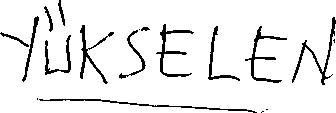 YÜKSELEN